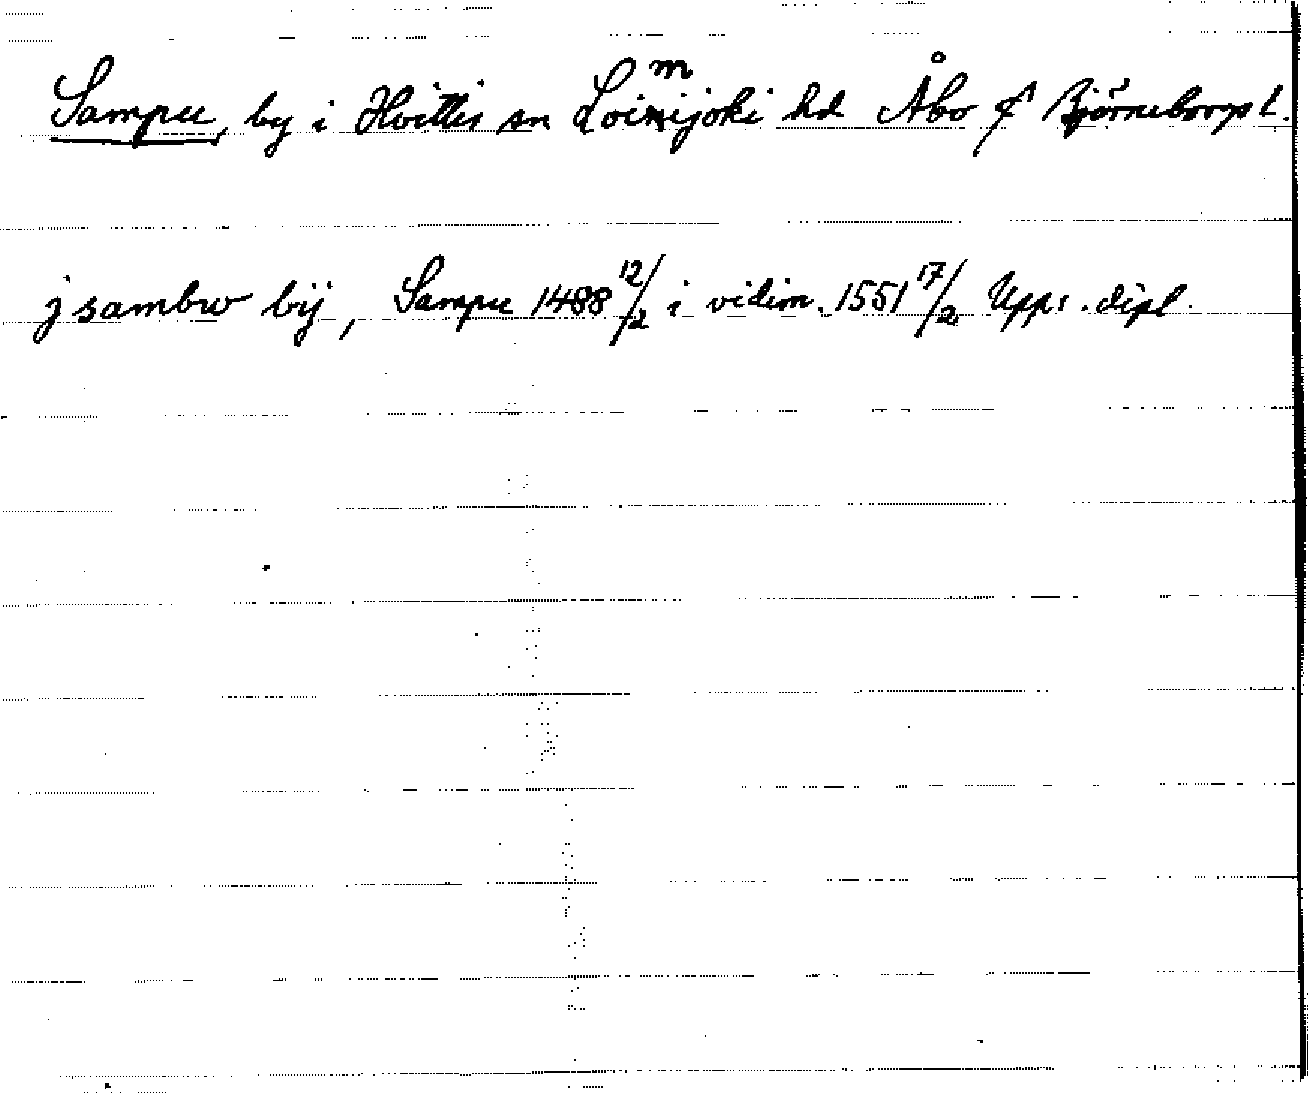 Sampu, by i Hvittis sn Loimijoki hd Åbo & Björneborgs l.
j sambw bij, Sampu 1488 12/2 i vidim. 1551 17/2 Upps. dipl.